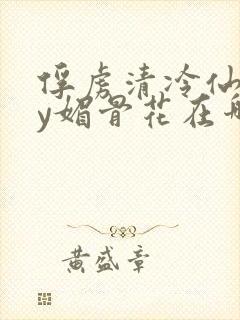 俘虏清冷仙
y媚骨花在
黄盛章